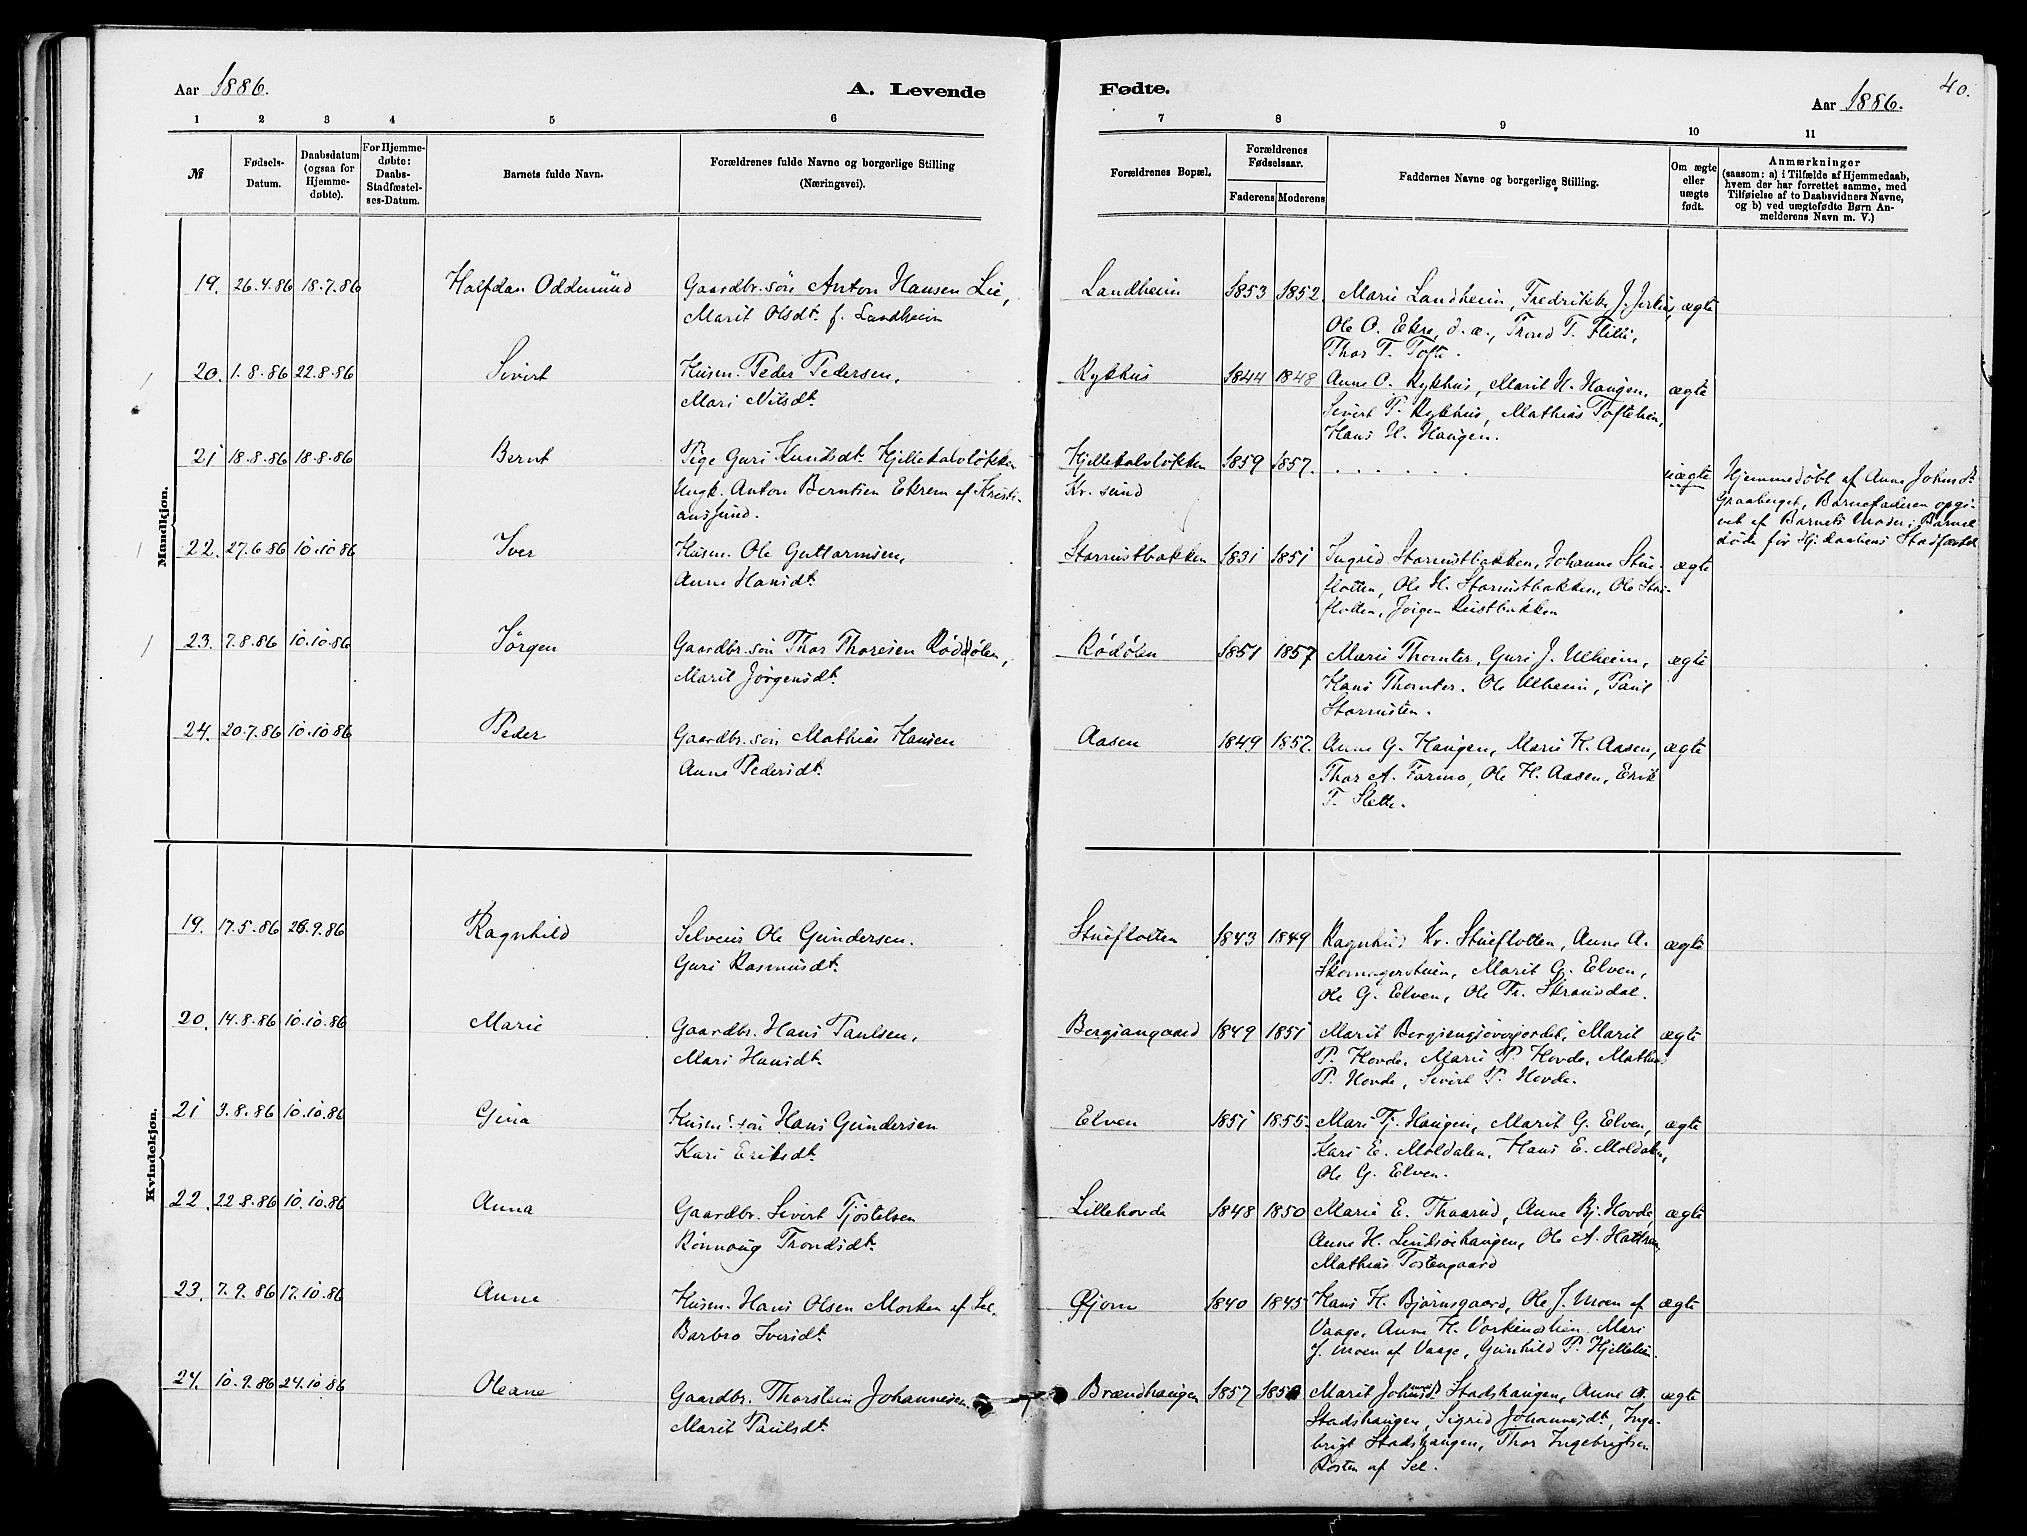 Aar 1886. A. Levende
1 2 3 4 5 6
№ Fødsels-Datum. Daabsdatum (ogsaa for Hjemmedøbte). For Hjemmedøbte: Daabs-Stadfæstelses-Datum. Barnets fulde Navn. Forældrenes fulde Navne og borgerlige Stilling (Næringsvei).
Mandkjøn.
19. 26.4.86 18.7.86 Halfdan Oddmund Gaardbr.søn Anton Hansen Lie,
Marit Olsdt. f. Landheim
20. 1.8.86 22.8.86 Sivert Husm. Peder Pedersen,
Mari Nilsdt.
21 18.8.86 18.8.86 Bernt Pige Guri Knudsdt. Hjellekalvløkken
Ungk. Anton Berntsen Ekrem af Kristi-
ansund.
22. 27.6.86 10.10.86 Iver Husm. Ole Guttormsen,
Anne Hansdt.
23. 7.8.86 10.10.86 Jørgen Gaardbr.søn Thor Thoresen Rødølen,
Marit Jørgensdt.
24. 20.7.86 10.10.86 Peder Gaardbr.søn Mathias Hansen
Anne Pedersdt.
Kvindekjøn.
19. 17.5.86 26.9.86 Ragnhild Selveier Ole Gundersen.
Guri Rasmusdt.
20. 14.8.86 10.10.86 Marie Gaardbr. Hans Paulsen,
Mari Hansdt.
21 3.8.86 10.10.86 Gina Husm.søn Hans Gundersen
Kari Eriksdt.
22. 22.8.86 10.10.86 Anna Gaardbr. Sivert Tjøstelsen
Rønnoug Trondsdt.
23. 7.9.86 17.10.86 Anne Husm. Hans Olsen Morken af Sel.
Barbro Iversdt.
24. 10.9.86 24.10.86 Oleane Gaardbr. Thorstein Johannesen
Marit Paulsdt.
Fødte. Aar 1886. 40.
7 8 9 10 11
Forældrenes Bopæl. Forældrenes Fødselsaar. Faderens Moderens Faddernes Navne og borgerlige Stilling. Om ægte eller uægte født. Anmærkninger (saasom: a) i Tilfælde af Hjemmedaab, hvem der har forrettet samme, med Tilføielse af to Daabsvidners Navne, og b) ved uægtefødte Børn Anmelderens Navn m. V.)
Landheim 1853 1852. Marie Landheim, Fredrikke J. ægte
Ole O. Ekre, d. æ., Trond T. Flitie,
Thor T. Tofte.
Rykhus 1844 1848 Anne O. Rykhus, Marit H. Haugen, ægte
Sivert P. Rykhus, Mathias Toftelien,
Hans H. Haugen.
Hjellekalvløkken 1859 1857. . . . . . . uægte Hjemmedøbt af Anne Johnsdt.
Kr.sund Graaberget, Barnefaderen opgi-
vet af Barnets Moder; Barnet
døde før Hj.daabens Stadfæstelse
Storrustbakken 1831 1851 Ingrid Storrustbakken, Johanne Stue- ægte
flotten, Ole H. Storrustbakken, Ole Stue-
flotten, Jørgen Rustbakken
Rødølen 1851 1857 Marie Thomter, Guri J. Ulheim, ægte
Hans Thomter. Ole Ulheim, Paul
Storrusten.
Aasen 1849 1857. Anne G. Haugen, Marie H. Aasen, ægte
Thor A. Formo, Ole H. Aasen, Erik
T. Slette.
Stueflotten 1843 1849 Ragnhild Kr. Stueflotten, Anne A. ægte
Skomagerstuen, Marit G. Elven,
Ole G. Elven, Ole Tr. Skramsdal.
Bergsangaard 1849 1851 Marit Bergsengjoverjordet, Marit ægte
P. Hovde, Marie P. Hovde, Mathias
P. Hovde, Sivert P. Hovde.
Elven 1851 1855. Mari Tj. Haugen, Marit G. Elven, ægte
Kari E. Moldalen, Hans E. Moldalen,
Ole G. Elven.
Lillehovde 1848 1850 Marie E. Thaarud, Anne Bj. Hovde, ægte
Anne H. Lindsøehaugen, Ole A. Hattrem,
Mathias Tostengaard
Gjorn 1840 1845 Hans H. Bjørnsgaard, Ole J. Moen af ægte
Vaage, Anne H. Vorkinslien, Mari
J. Moen af Vaage, Gunhild P. Hjellelien.
Brændhaugen 1857 Marit Johnsdt. Stadshaugen, Anne O. ægte
Stadshaugen, Sigrid Johannesdt, Inge-
brigt Stadshaugen, Thor Ingebrigtsen
Rosten af Sel.